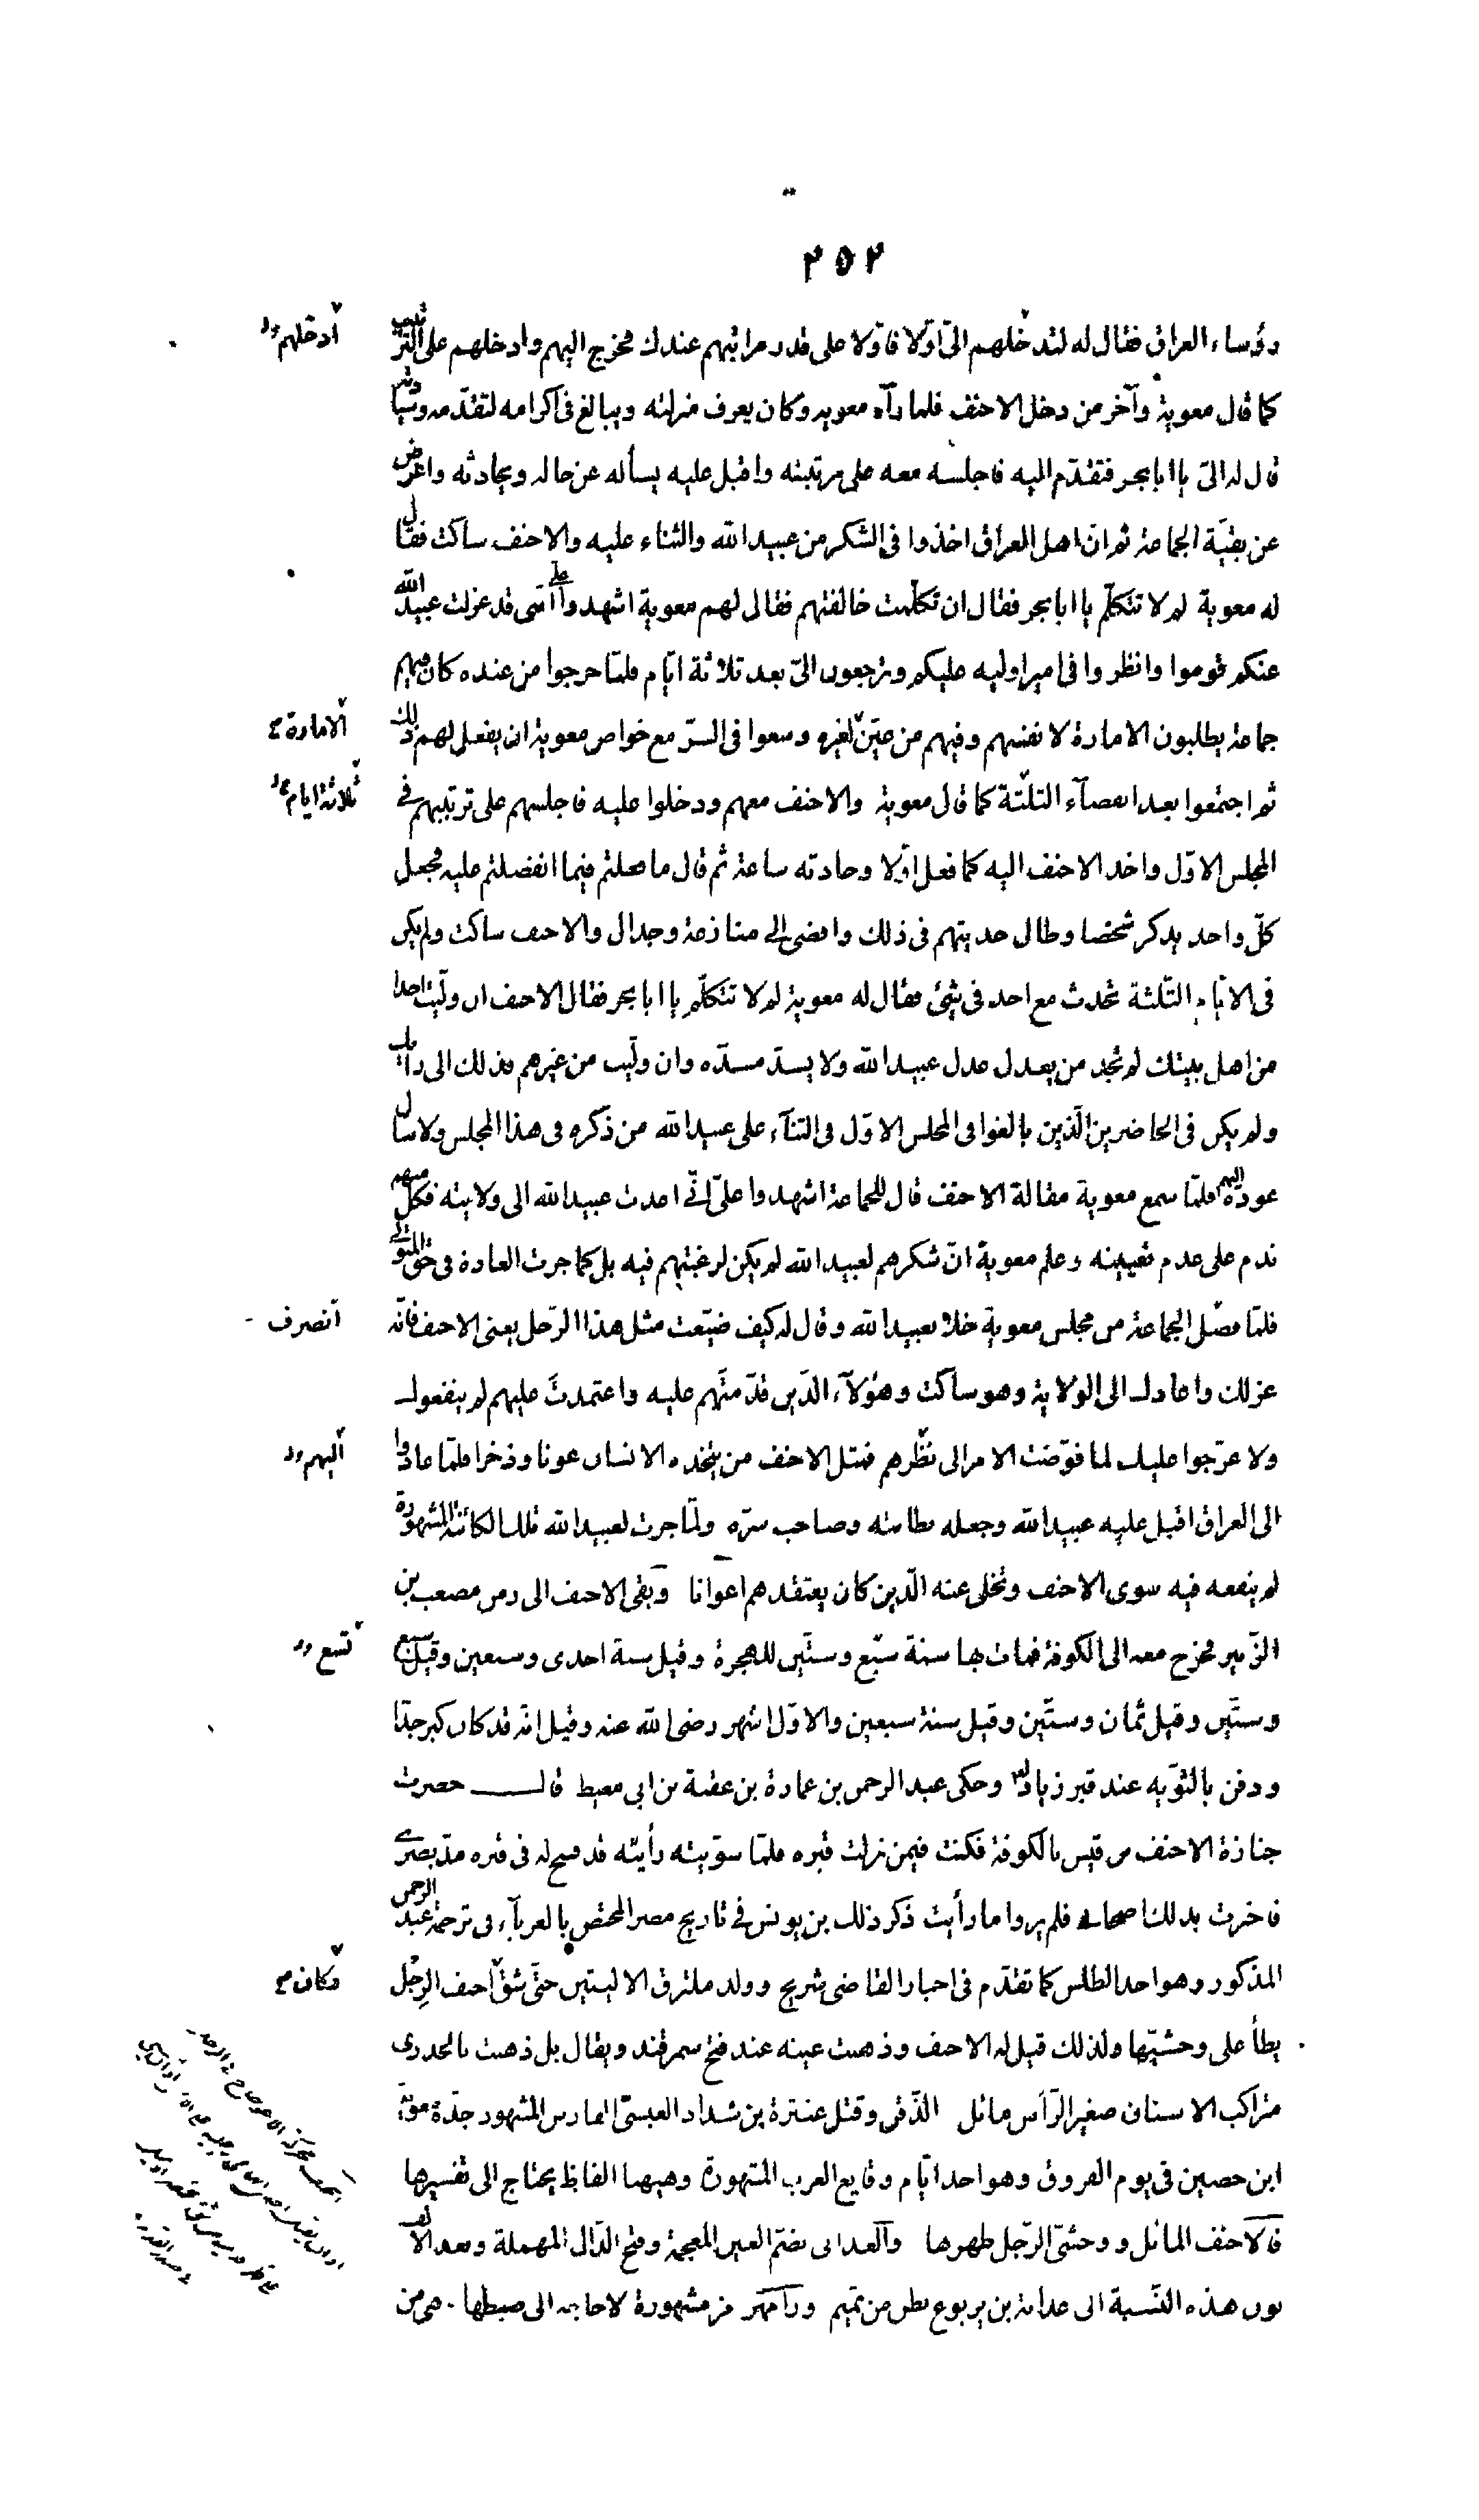 ٢٥٢
رؤساء العراق فقال له لتدخلهم الىّ اوّلا فاوّلا على قدر مراتبهم عندك فخرج اليهم وادخلهم على الترتيب
كما قال معوية وآخر من دخل الاحنف فلما رآه معويه وكان يعرف منزلته ويبالغ فى اكرامه لتقدّمه وسيادته
قال له الىّ يا ابا بحر فتقدّم اليه فاجلسه معه على مرتبته واقبل عليه يسأله عن حاله ويحادثه واعرض
عن بقيّة الجماعة ثم ان اهل العراق اخذوا فى الشكر من عبيد الله والثناء عليه والاحنف ساكت فقال
له معوية لم لا تتكلّم يا ابا بحر فقال ان تكلّمت خالفتهم فقال لهم معوية اشهدوا علىّ انّنى قد عزلت عبيد الله
عنكم قوموا وانظروا فى امير اوليه عليكم وترجعون الىّ بعد ثلاثة ايّام فلمّا خرجوا من عنده كان فيهم
جماعة يطلبون الامارة لانفسهم وفيهم من عيّن لغيره وسعوا فى السرّ مع خواص معوية ان يفعل لهم ذلك
ثم اجتمعوا بعد انقضآء الثلثة كما قال معوية والاحنف معهم ودخلوا عليه فاجلسهم على ترتيبهم فى
المجلس الاوّل واخذ الاحنف اليه كما فعل اوّلا وحادثه ساعة ثم قال ما فعلتم فيما انفصلتم عليه فجعل
كلّ واحد يذكر شخصا وطال حديثهم فى ذلك وافضى الى منازعة وجدال والاحنف ساكت ولم يكن
فى الايّام الثلثة تحدث مع احد فى شئ فقال له معوية لم لا تتكلّم يا ابا بحر فقال الاحنف ان ولّيت احدا
من اهل بيتك لم تجد من يعدل عدل عبيد الله ولا يسدّ مسدّه وان ولّيت من غيرهم فذلك الى رأيك
ولم يكن فى الحاضرين الّذين بالغوا فى المجلس الاوّل فى الثنآء على عبيد الله من ذكره فى هذا المجلس ولا سأل
عوده اليهم فلمّا سمع معوية مقالة الاحنف قال للجماعة اشهدوا علىّ انّى اعدت عبيد الله الى ولايته فكلّ منهم
ندم على عدم تعيينه وعلم معوية انّ شكرهم لعبيد الله لم يكن لرغبتهم فيه بل كما جرت العادة فى حقّ المتولّى
فلمّا فصّل الجماعة من مجلس معوية خلا بعبيد الله وقال له كيف ضيّعت مثل هذا الرّجل يعنى الاحنف فانّه
عزلك واعادك الى الولاية وهو ساكت وهؤلآء الذّين قدّمتهم عليه واعتمدت عليهم لم ينفعوك
ولا عرّجوا عليك لما فوّضت الامر الى نظرهم فمثل الاحنف من يتّخذه الانسان عونا وذخرا فلمّا عادوا
الى العراق اقبل عليه عبيد الله وجعله بطانته وصاحب سرّه ولمّا جرت لعبيد الله تلك الكائنة المشهورة
لم ينفعه فيه سوى الاحنف وتخلى عنه الّذين كان يعتقدهم اعوانا وبقى الاحنف الى زمن مصعب بن
الزّبير فخرج معه الى الكوفة فمات بها سنة سبّع وستّين للهجرة وقيل سنة احدى وسبعين وقيل سبع
وستّين وقيل ثمان وستّين وقيل سنة سبعين والاوّل اشهر رضى الله عنه وقيل انّه قد كان كبر جدّا
ودفن بالثوّيه عند قبر زياد وحكى عبد الرحمن بن عمارة بن عقبة بن ابى معيط قال حضرت
جنازة الاحنف بن قيس بالكوفة فكنت فيمن نزلت قبره فلمّا سوّيته رأيته قد فسح له فى قبره مدّ بصرى
فاخبرت بذلك اصحابى فلم يروا ما رأيت ذكر ذلك بن يونس فى تاريخ مصر المختص بالغربآء فى ترجمة عبد الرحمن
المذكور وهو احد الطلس كما تقدّم فى اخبار القاضى شريح وولد ملتزق الاليتين حتّى شقّ احنف الرِجْل
يطأ على وحشيّها ولذلك قيل له الاحنف وذهبت عينه عند فتح سمرقند ويقال بل ذهبت بالجدرى
متراكب الاسنان صغير الرّأس مائل الذّقن وقتل عنترة بن شداد العبسىّ الفارس المشهور جدّه معوية
ابن حصين فى يوم الفروق وهو احد ايّام وقايع العرب المشهورة وهيهنا الفاظ يحتاج الى تفسيرها
فالاحنف المائل ووحشىّ الرّجل ظهرها والغدانى بضمّ الغين المعجمة وفتح الدّال المهملة وبعد الالف
نون هذه النّسبة الى غدانة بن يربوع بطن من تميم ورامهرمز مشهورة لا حاجة الى ضبطها. هى من
ادخلهم
الامارة
ثلاثة ايام
انصرف
اليهم
تسع
فكان